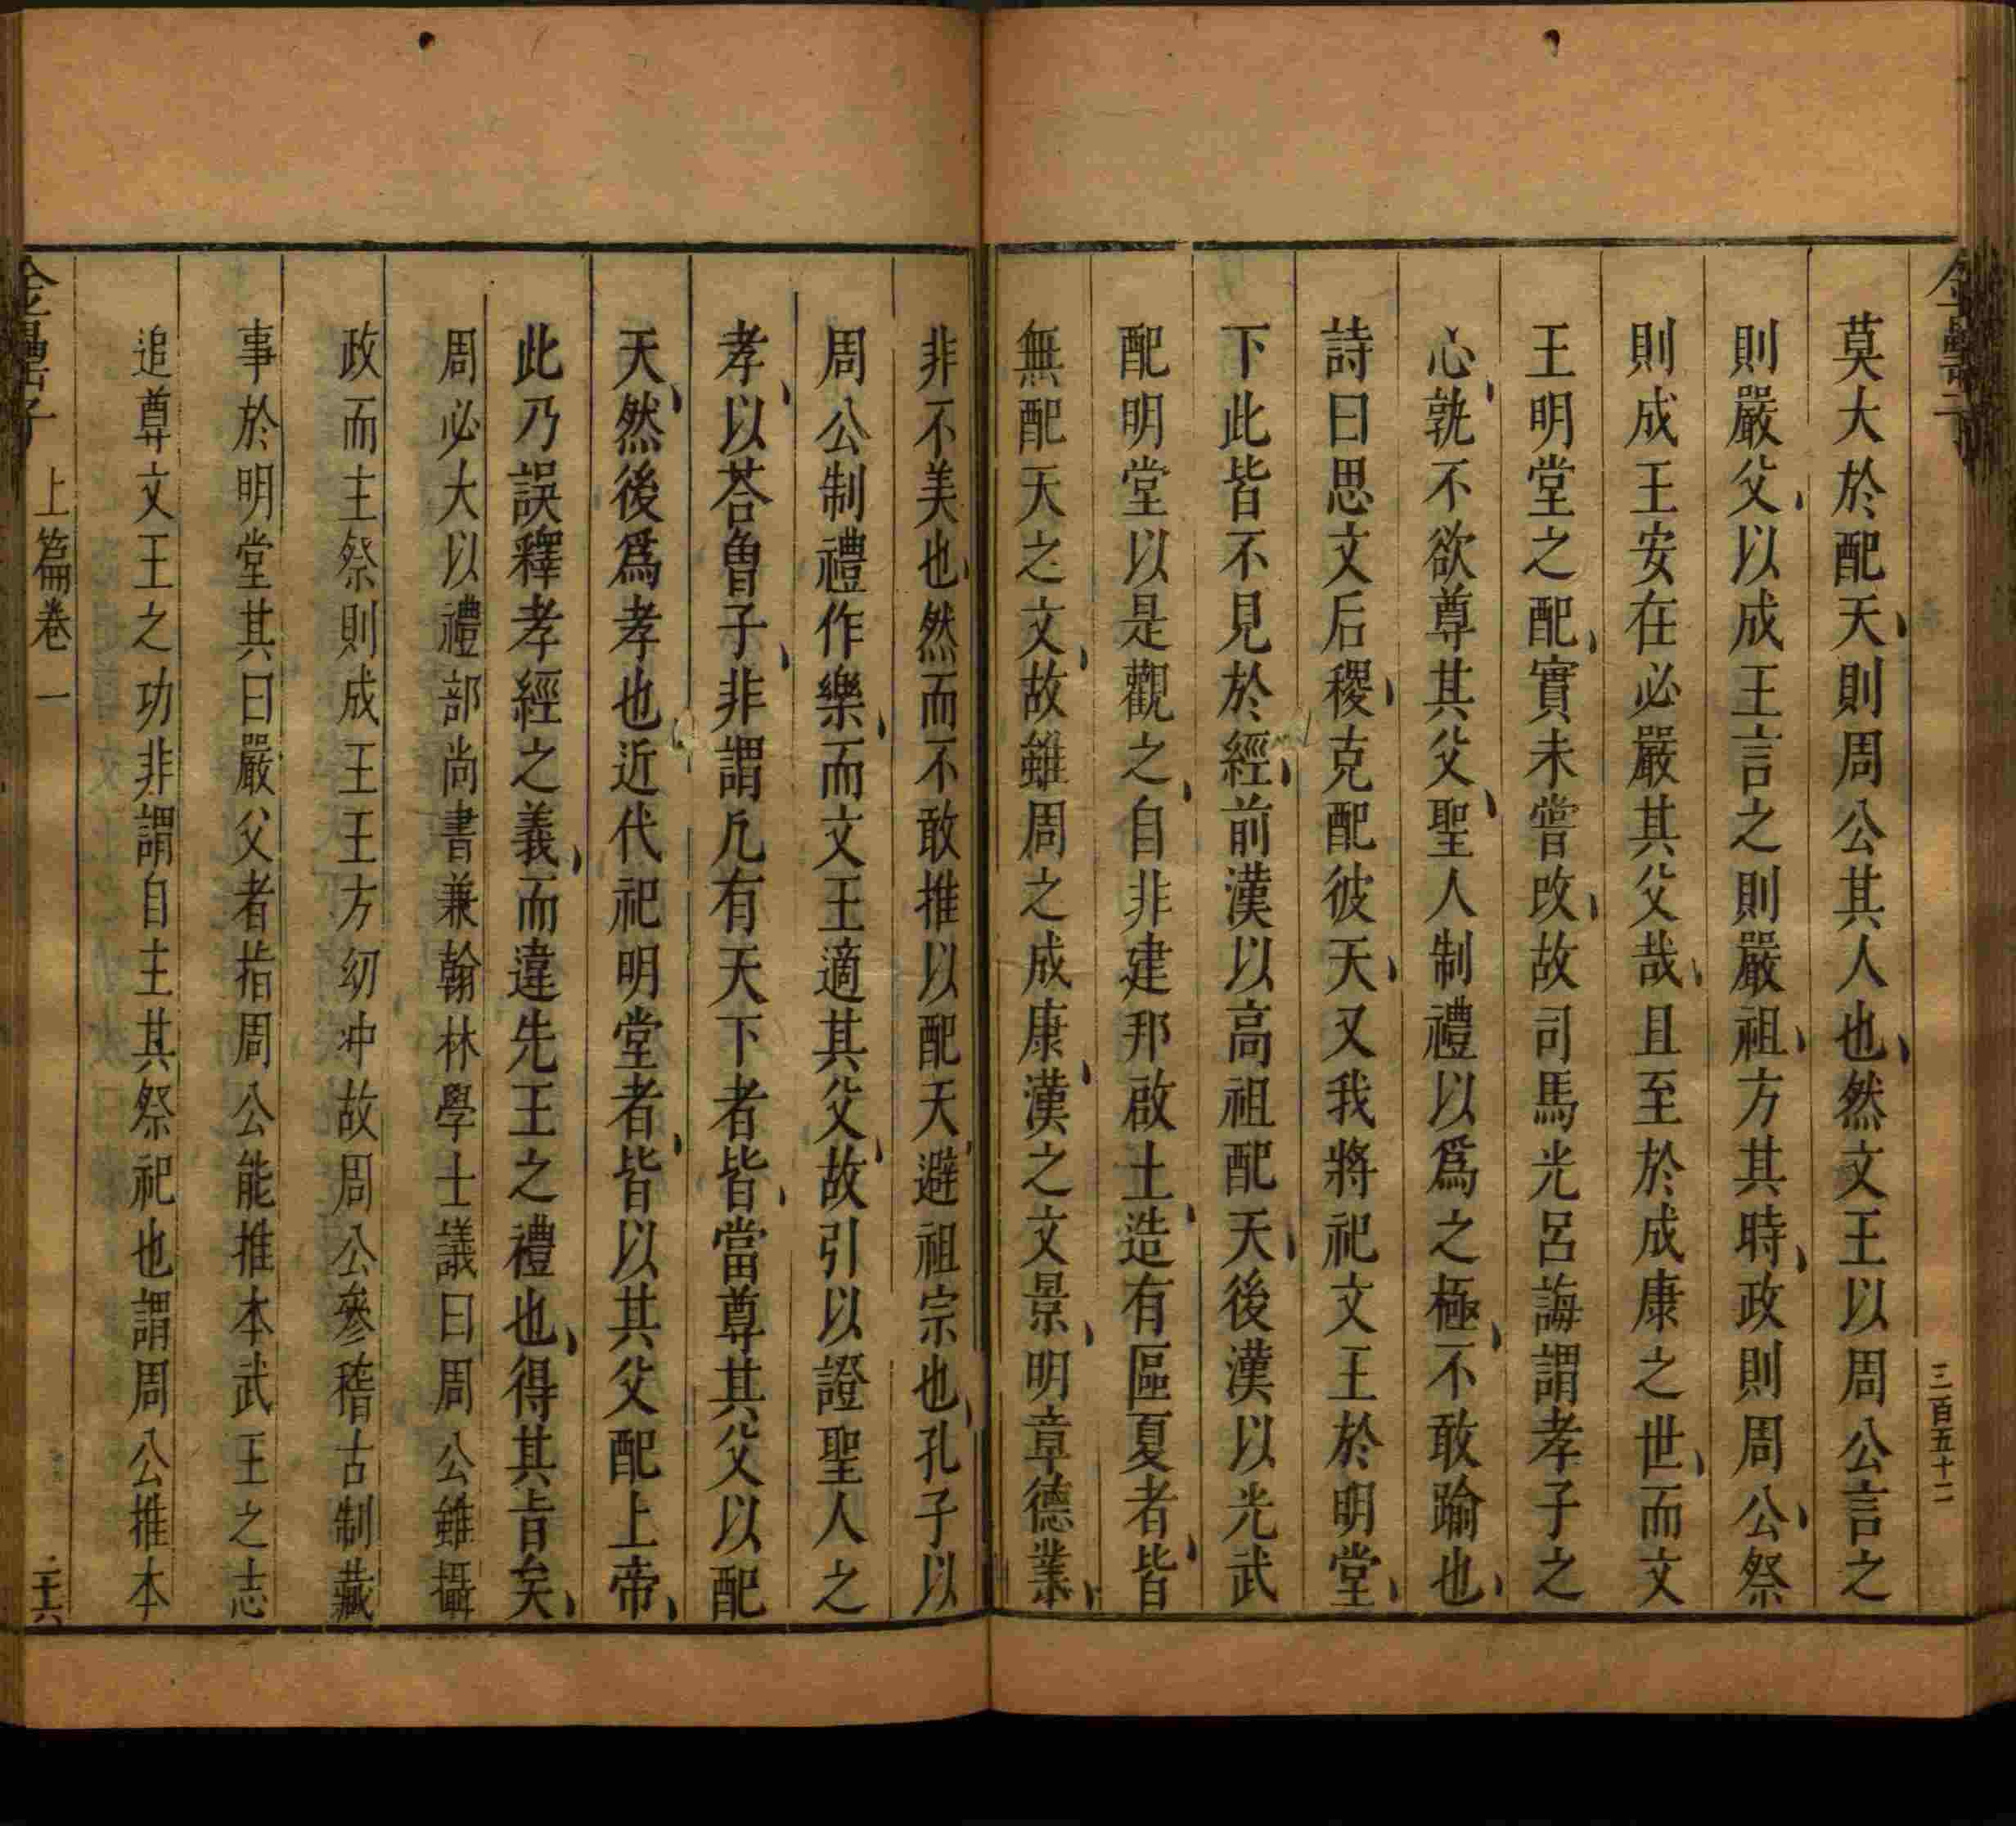 莫大於配天則周公其人也然文王以周公言之
則嚴父以成王言之則嚴祖方其時政則周公祭
則成王安在必嚴其父哉且至於成康之世而文
王明堂之配實未嘗改故司馬光呂誨謂孝子之
心孰不欲尊其父聖人制禮以爲之極不敢踰也
詩曰思文后稷克配彼天又我將祀文王於明堂
下此皆不見於經前漢以高祖配天後漢以光武
配明堂以是觀之自非建邦啟土造有區夏者皆
無配天之文故雖周之成康漢之文景明章德業
非不美也然而不敢推以配天避祖宗也孔子以
周公制禮作樂而文王適其父故引以證聖人之
孝以荅曾子非謂凡有天下者皆當尊其父以配
天然後爲孝也近代祀明堂者皆以其父配上帝
此乃誤釋孝經之義而違先王之禮也得其旨矣
周必大以禮部尚書兼翰林學士議曰周公雖攝
政而主祭則成王王方幼冲故周公參稽古制藏
事於明堂其曰嚴父者指周公能推本武王之志
追尊文王之功非謂自主其祭祀也謂周公推本
金罍子 上篇卷一 三百五十二
二十六